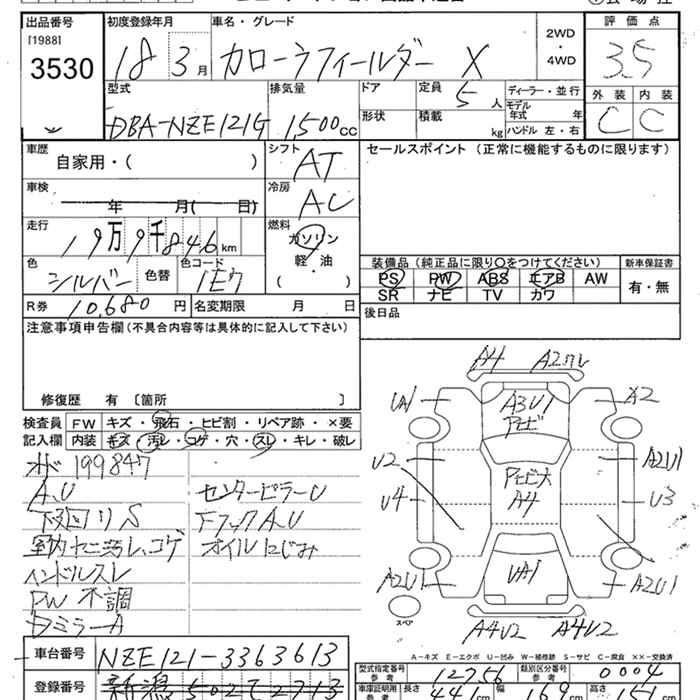 出品番号 初度登録年月 車名・グレード 評価点
[1988] 3530 18 3月 カローラフィールダー X 2WD・4WD 3.5
型式 排気量 ドア 定員 5人 ディーラー・並行 外装 内装
DBA-NZE121G 1,500cc 形状 積載 kg モデル年式 年 C C
ハンドル 左・右
車歴 自家用・( ) シフト AT セールスポイント (正常に機能するものに限ります)
車検 年 月( 日) 冷房 AC
走行 19万9千846km 燃料 ガソリン 軽・油 ( )
色 シルバー 色替 色コード 装備品 (純正品に限り○をつけてください) 新車保証書
PS PW ABS エアB AW 有・無
SR ナビ TV カワ
R券 10,680円 名変期限 月 日 後日品
注意事項申告欄(不具合内容等は具体的に記入して下さい)
修復歴 有 〔箇所 〕
検査員記入欄 FW キズ・飛石・ヒビ割・リペア跡・×要
内装 キズ・汚レ・コゲ・穴・スレ・キレ・破レ
199847
A.U センターピラーU
下回りS FフックA.U
オイルにじみ
ハンドルスレ
PW 不調
ミラーA
A4 A2
UA1 A3U1 A2
U2 A2U1
U4 A4 U3
A2U1 UA1 A2U1
スペア
A4V2 A4V2
A-キズ E-エクボ U-凹み W-補修跡 S-サビ C-腐食 XX-交換済
車台番号 NZE121-3363613
型式指定番号 参考 12756 類別区分番号 参考 0004
登録番号 車庫証明用 参考 長さ 441cm 幅 169cm 高さ cm